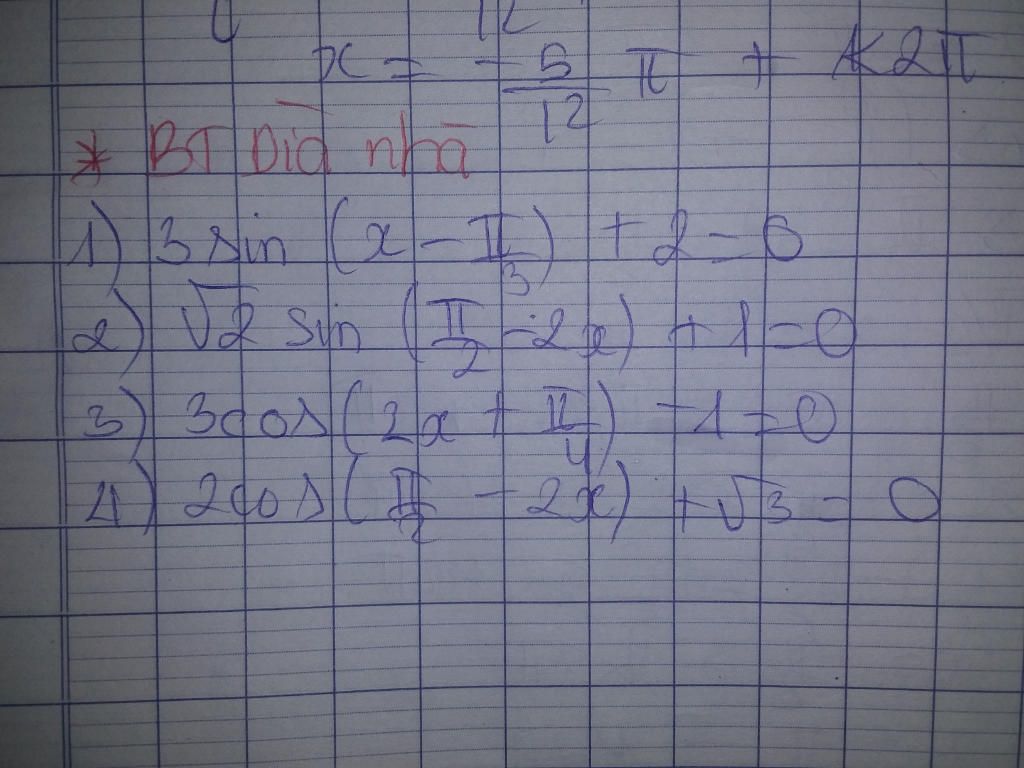 12
x = -5/12 π + k2π
* BT Dìa nhà
1) 3 sin (x - π/3) + 2 = 0
2) √2 sin (π/2 - 2x) + 1 = 0
3) 3cos (2x + π/4) - 1 = 0
4) 2cos (π/2 - 2x) + √3 = 0